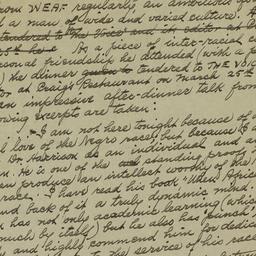 from WEAF regularly, an
and a man of wide and varied culture. A
tendered to The Voice and its editor at
25th here As a piece of inter-racial
personal friendship he attended with a
the dinner tendered to THE VOI
at Craig's Restaurant on March 25th
an impressive after-dinner talk from
owing excerpts are taken:
"I am not here tonight because of
love of the Negro race, but because I
Dr. Harrison as an individual and as
man. He is one of the standing proofs
can produce an intellect worthy of the
race. I have read his book "When Africa
and back of it a truly dynamic mind.
has not only academic learning (which
much by itself) but he also has "punch"
and highly commend him for dedica
to the service of his race